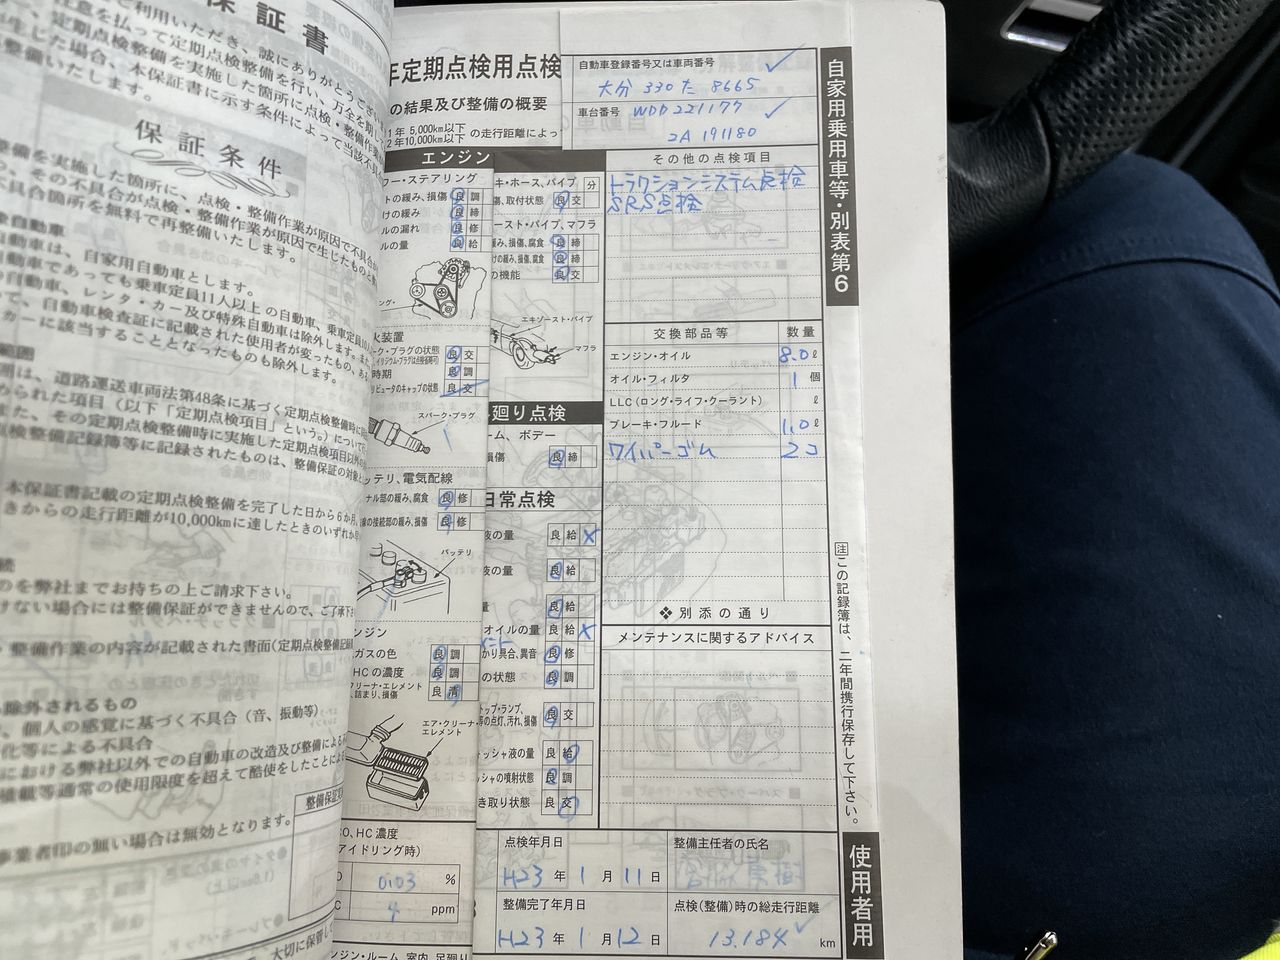 保証書
ご利用いただき、誠にありがとうござい
注意を払って定期点検整備を行い、万全を期し
定期点検整備を実施した箇所に点検・整備作
生じた場合、本保証書に示す条件によって当該不具
整備いたします。
保証条件
整備を実施した箇所に、点検・整備作業が原因で不具合が
その不具合が点検・整備作業が原因で生じたものと
不具合箇所を無料で再整備いたします。
象自動車
自動車は、自家用自動車とします。
自動車であっても乗車定員11人以上の自動車、乗車定員10
自動車、レンタ・カー及び特殊自動車は除外します。また
って、自動車検査証に記載された使用者が変ったもの、ある
カーに該当することとなったものも除外します。
範囲
囲は、道路運送車両法第48条に基づく定期点検整備時に
められた項目（以下「定期点検項目」という。）について
また、その定期点検整備時に実施した定期点検項目以外の
点検整備記録簿等に記録されたものは、整備保証の対象と
本保証書記載の定期点検整備を完了した日から6か月、
きからの走行距離が10,000kmに達したときのいずれか早
続
のを弊社までお持ちの上ご請求下さい。
けない場合には整備保証ができませんので、ご了承下
整備作業の内容が記載された書面（定期点検整備記録
除外されるもの
、個人の感覚に基づく不具合（音、振動等）
化等による不具合
における弊社以外での自動車の改造及び整備による
積載等通常の使用限度を超えて酷使をしたことによ
整備保証
事業者印の無い場合は無効となります。
大切に保管して
年定期点検用点検
の結果及び整備の概要
1年 5,000km以下
2年10,000km以下 の走行距離によっ
自動車登録番号又は車両番号
大分 330 た 8665
車台番号 WDD221177
2A 191180
自家用乗用車等・別表第6
エンジン
ワー・ステアリング
トの緩み、損傷 良 調
けの緩み 良 締
ルの漏れ 良 修
ルの量 良 給
キ・ホース、パイプ 分
傷、取付状態 良 交
ースト・パイプ、マフラ
緩み、損傷、腐食 良 締
けの緩み、損傷、腐食 良 締
の機能 良 交
エキゾースト・パイプ
マフラ
火装置
ーク・プラグの状態 良 交
時期 良 調
リビュータのキャップの状態 良 交
スパーク・プラグ
廻り点検
ーム、ボデー
損傷 良 締
ッテリ、電気配線
ナル部の緩み、腐食 良 修
線の接続部の緩み、損傷 良 修
バッテリ
日常点検
液の量 良 給 ×
液の量 良 給
量 良 給
オイルの量 良 給 ×
かり具合、異音 良 修
の状態 良 調
トップ・ランプ、
等の点灯、汚れ、損傷 良 交
ッシャ液の量 良 給
ッシャの噴射状態 良 調
き取り状態 良 交
ンジン
ガスの色 良 調
HCの濃度 良 調
クリーナ・エレメント
、詰まり、損傷 良 清
エア・クリーナ・
エレメント
CO、HC濃度
アイドリング時)
0.03 %
4 ppm
ンジン・ルーム、室内、足廻り
その他の点検項目
トラクションシステム点検
SRS点検
交換部品等 数量
エンジン・オイル 8.0 ℓ
オイル・フィルタ 1 個
LLC（ロング・ライフ・クーラント） ℓ
ブレーキ・フルード 1.0 ℓ
ワイパーゴム 2コ
❖別添の通り
メンテナンスに関するアドバイス
注 この記録簿は、二年間携行保存して下さい。
使用者用
点検年月日
H23 年 1 月 11 日
整備主任者の氏名
整備完了年月日
H23 年 1 月 12 日
点検(整備)時の総走行距離
13,184 km